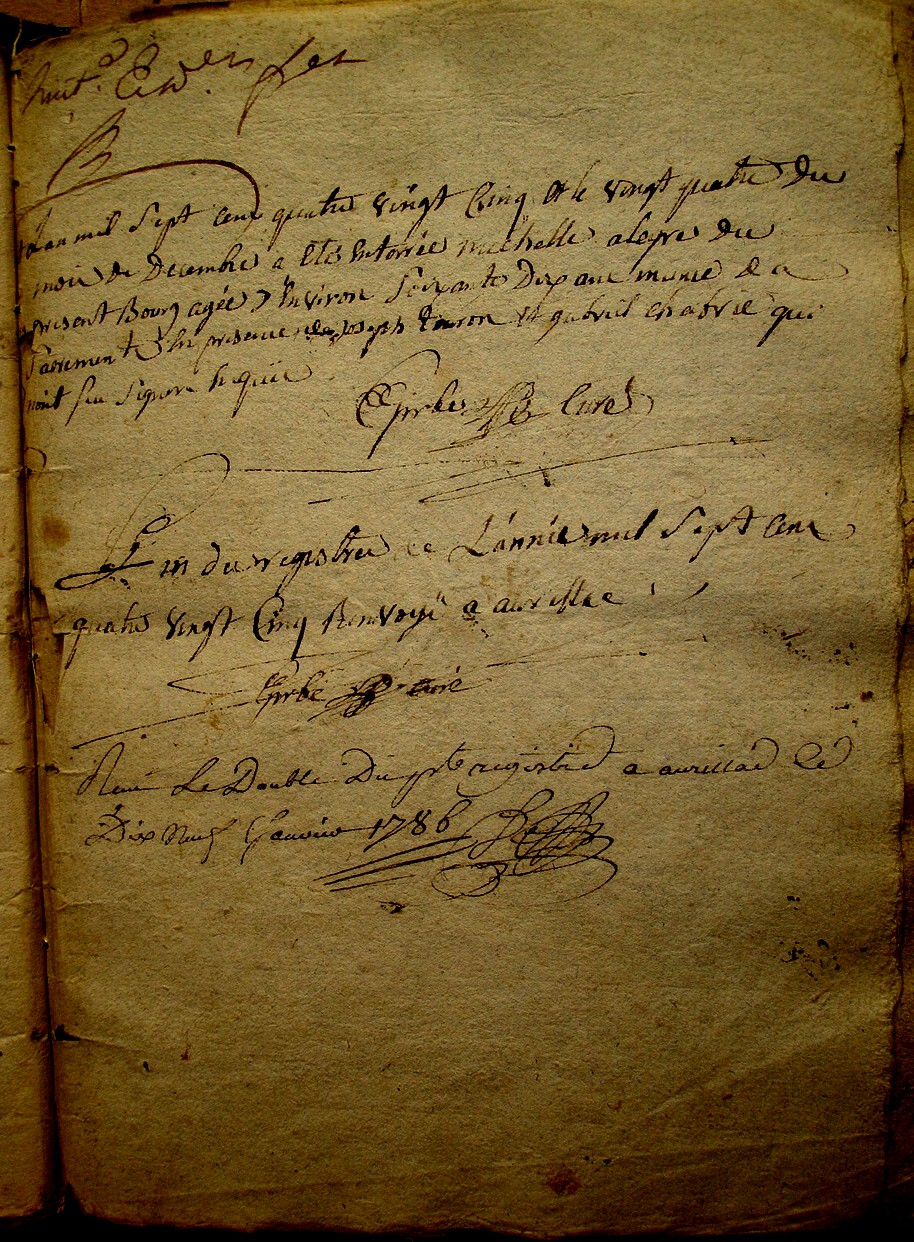 huit.e et der.er
L'an mil sept cens quatre vingt cinq et le vingt quatre du
mois de decembre a été enterrée michelle alegre du
present Bourg agée d'environ soixante dix ans munie de a
sacrement en presence de joseph et gabriel chabrie qui
n'ont seu signer requis
curé
Fin du registre de L'année mil sept cens
quatre vingt cinq Renvoyé a aurillac
curé
Remi Le Double Du pnt registre a aurillac le
Dix neuf Janvier 1786